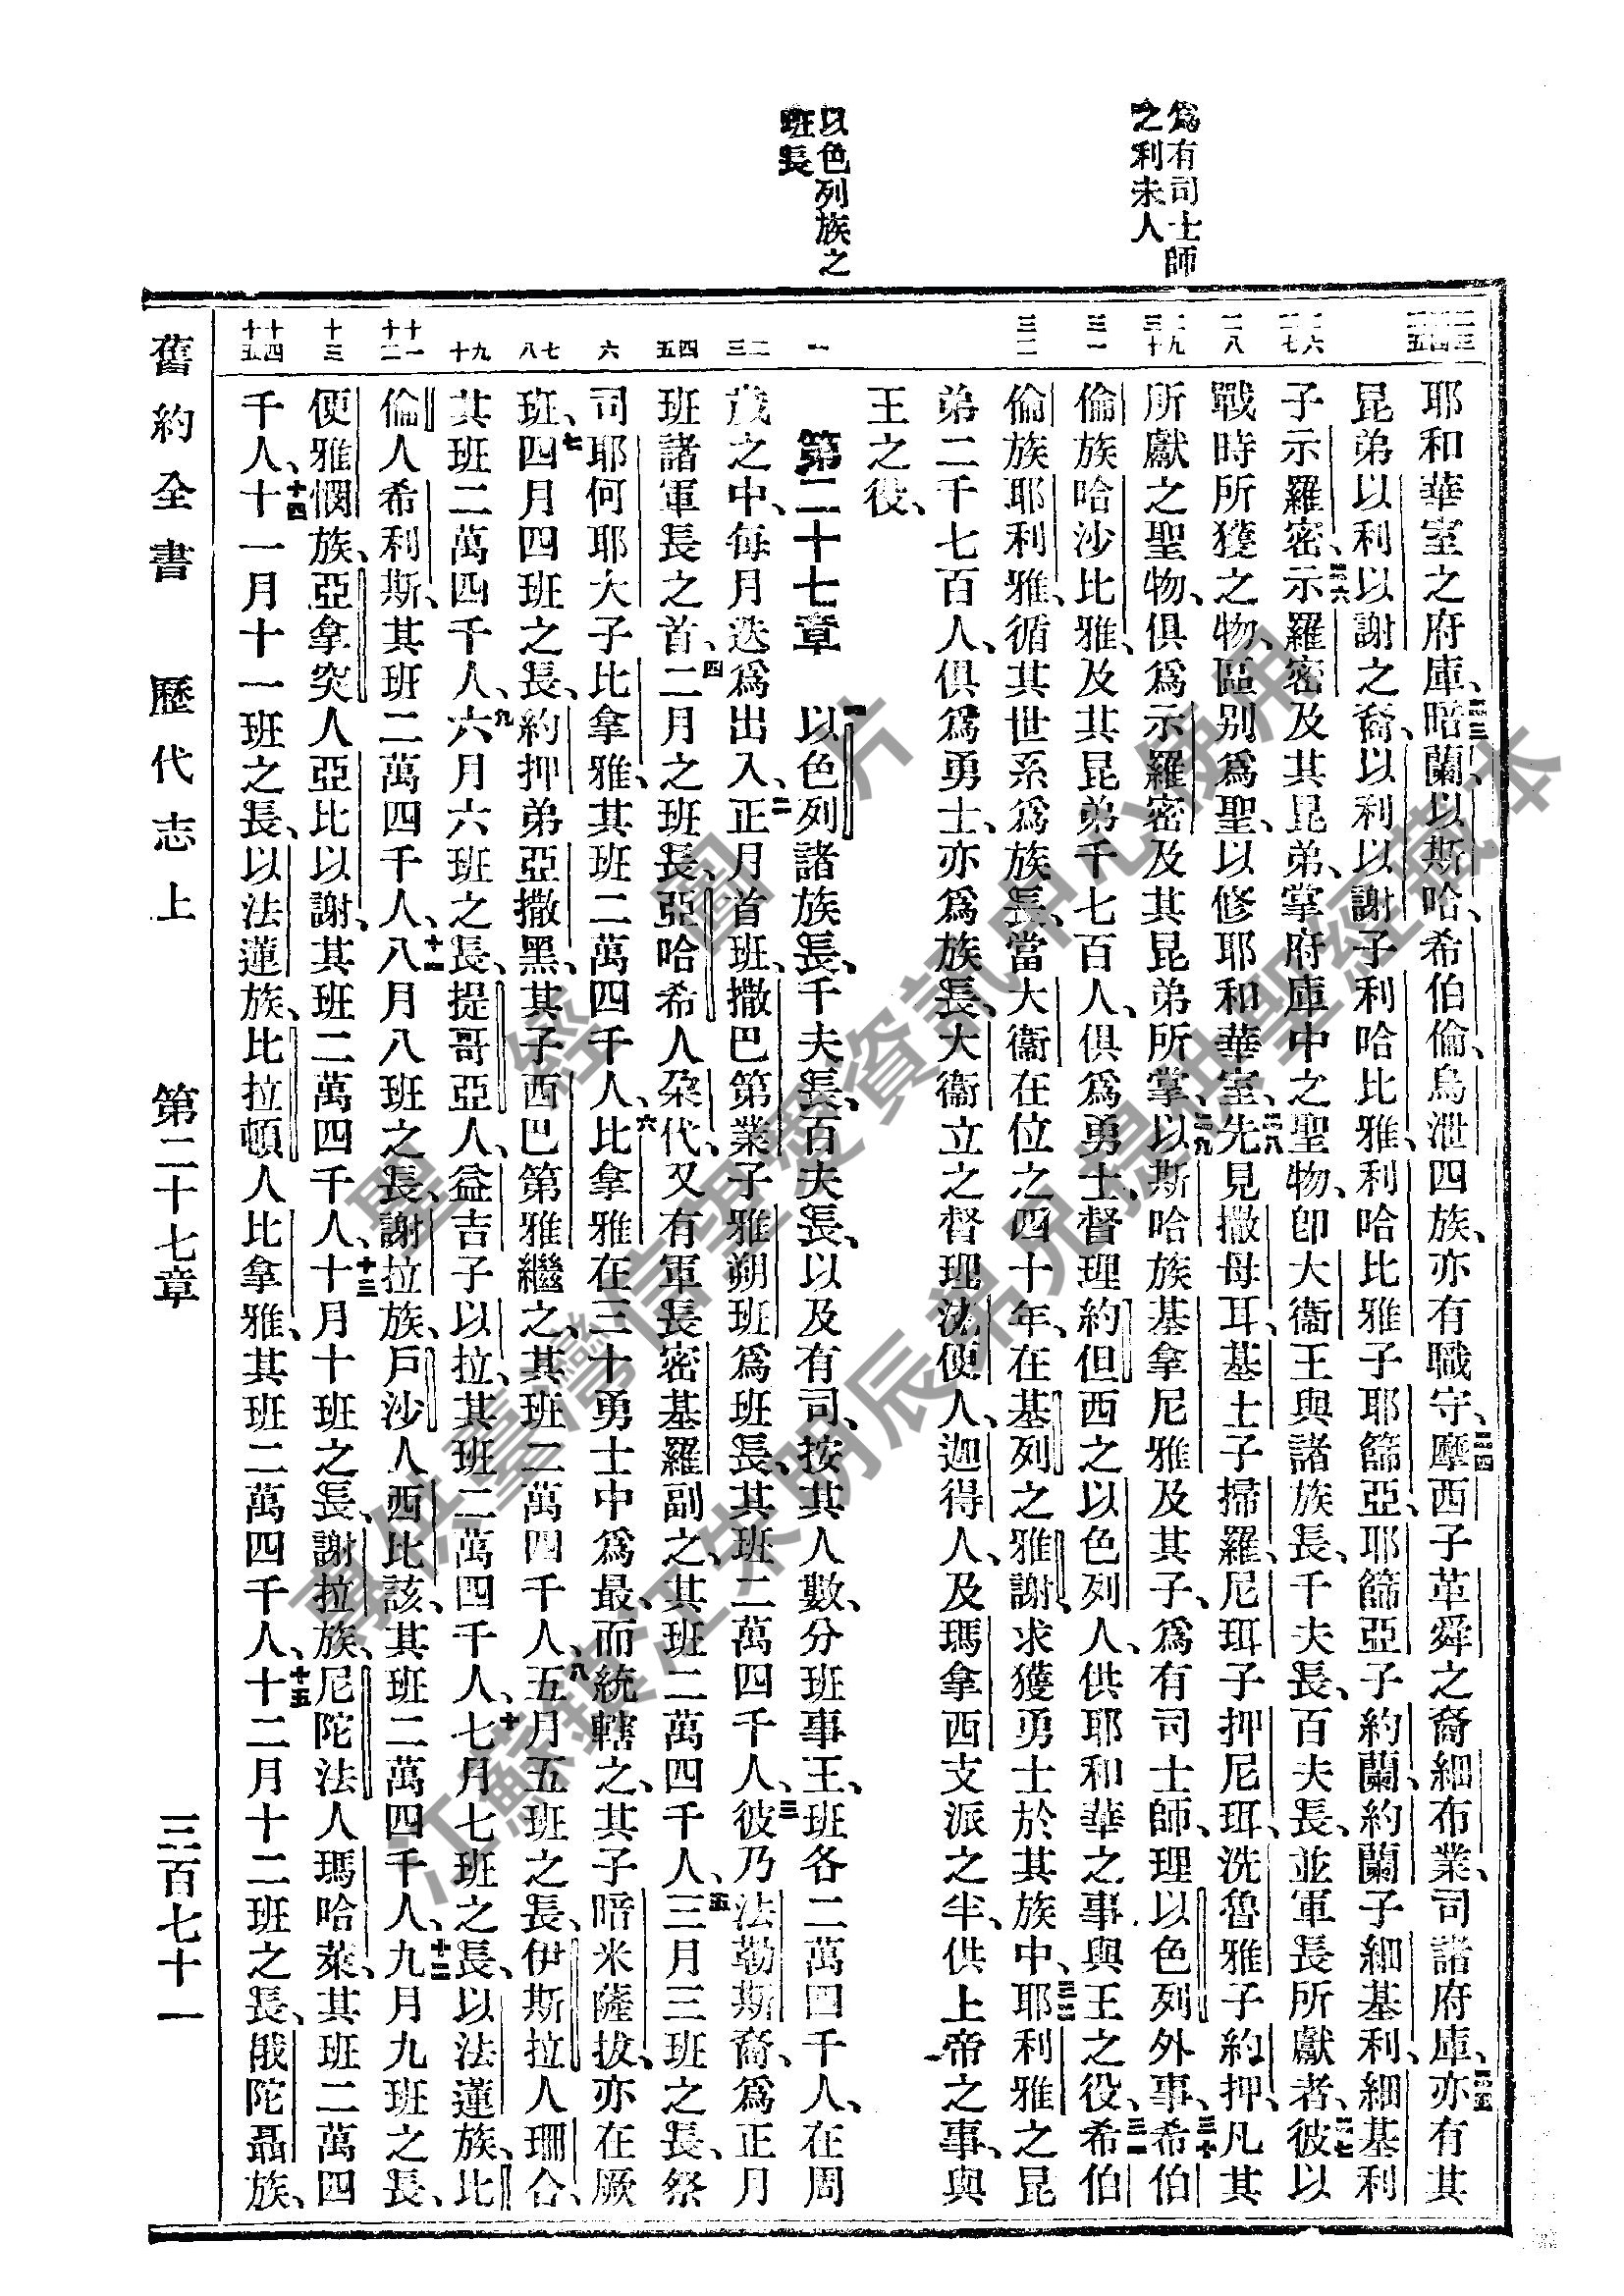 為有司士師
之利未人
以色列族之
班長
二三 二四 二五
二六 二七
二八
二九 三十
三一
三二
一
二 三
四 五
六
七 八
九 十
十一 十二
十三
十四 十五
耶和華室之府庫、二三暗蘭、以斯哈、希伯倫、烏泄四族、亦有職守、二四摩西子革舜之裔細布業、司諸府庫、二五亦有其
昆弟以利以謝之裔、以利以謝子利哈比雅、利哈比雅子耶篩亞、耶篩亞子約蘭、約蘭子細基利、細基利
子示羅密、二六示羅密及其昆弟、掌府庫中之聖物、卽大衞王與諸族長、千夫長、百夫長、並軍長所獻者、二七彼以
戰時所獲之物、區别爲聖、以修耶和華室、二八先見撒母耳、基士子掃羅、尼珥子押尼珥、洗魯雅子約押、凡其
所獻之聖物、俱爲示羅密及其昆弟所掌、二九以斯哈族基拿尼雅及其子、爲有司士師、理以色列外事、三十希伯
倫族哈沙比雅、及其昆弟千七百人、俱爲勇士、督理約但西之以色列人、供耶和華之事、與王之役、三一希伯
倫族耶利雅、循其世系爲族長、當大衞在位之四十年、在基列之雅謝、求獲勇士於其族中、三二耶利雅之昆
弟二千七百人、俱爲勇士、亦爲族長、大衞立之督理流便人、迦得人、及瑪拿西支派之半、供上帝之事、與
王之役、
第二十七章 一以色列諸族長、千夫長、百夫長、以及有司、按其人數、分班事王、班各二萬四千人、在周
歲之中、每月迭爲出入、二正月首班、撒巴第業子雅朔班爲班長、其班二萬四千人、三彼乃法勒斯裔、爲正月
班諸軍長之首、四二月之班長、亞哈希人朶代、又有軍長密基羅副之、其班二萬四千人、五三月三班之長、祭
司耶何耶大子比拿雅、其班二萬四千人、六比拿雅在三十勇士中爲最、而統轄之、其子暗米薩拔、亦在厥
班、七四月四班之長、約押弟亞撒黑、其子西巴第雅繼之、其班二萬四千人、八五月五班之長、伊斯拉人珊合、
其班二萬四千人、九六月六班之長、提哥亞人、益吉子以拉、其班二萬四千人、十七月七班之長、以法蓮族、比
倫人希利斯、其班二萬四千人、十一八月八班之長、謝拉族、戶沙人西比該、其班二萬四千人、十二九月九班之長、
便雅憫族、亞拿突人亞比以謝、其班二萬四千人、十三十月十班之長、謝拉族、尼陀法人瑪哈萊、其班二萬四
千人、十四十一月十一班之長、以法蓮族、比拉頓人比拿雅、其班二萬四千人、十五十二月十二班之長、俄陀聶族、
舊約全書 歷代志上 第二十七章 三百七十一
聖經圖片
專供臺灣信望愛資訊中心使用
江蘇鎮江朱明辰弟兄提供聖經藏本